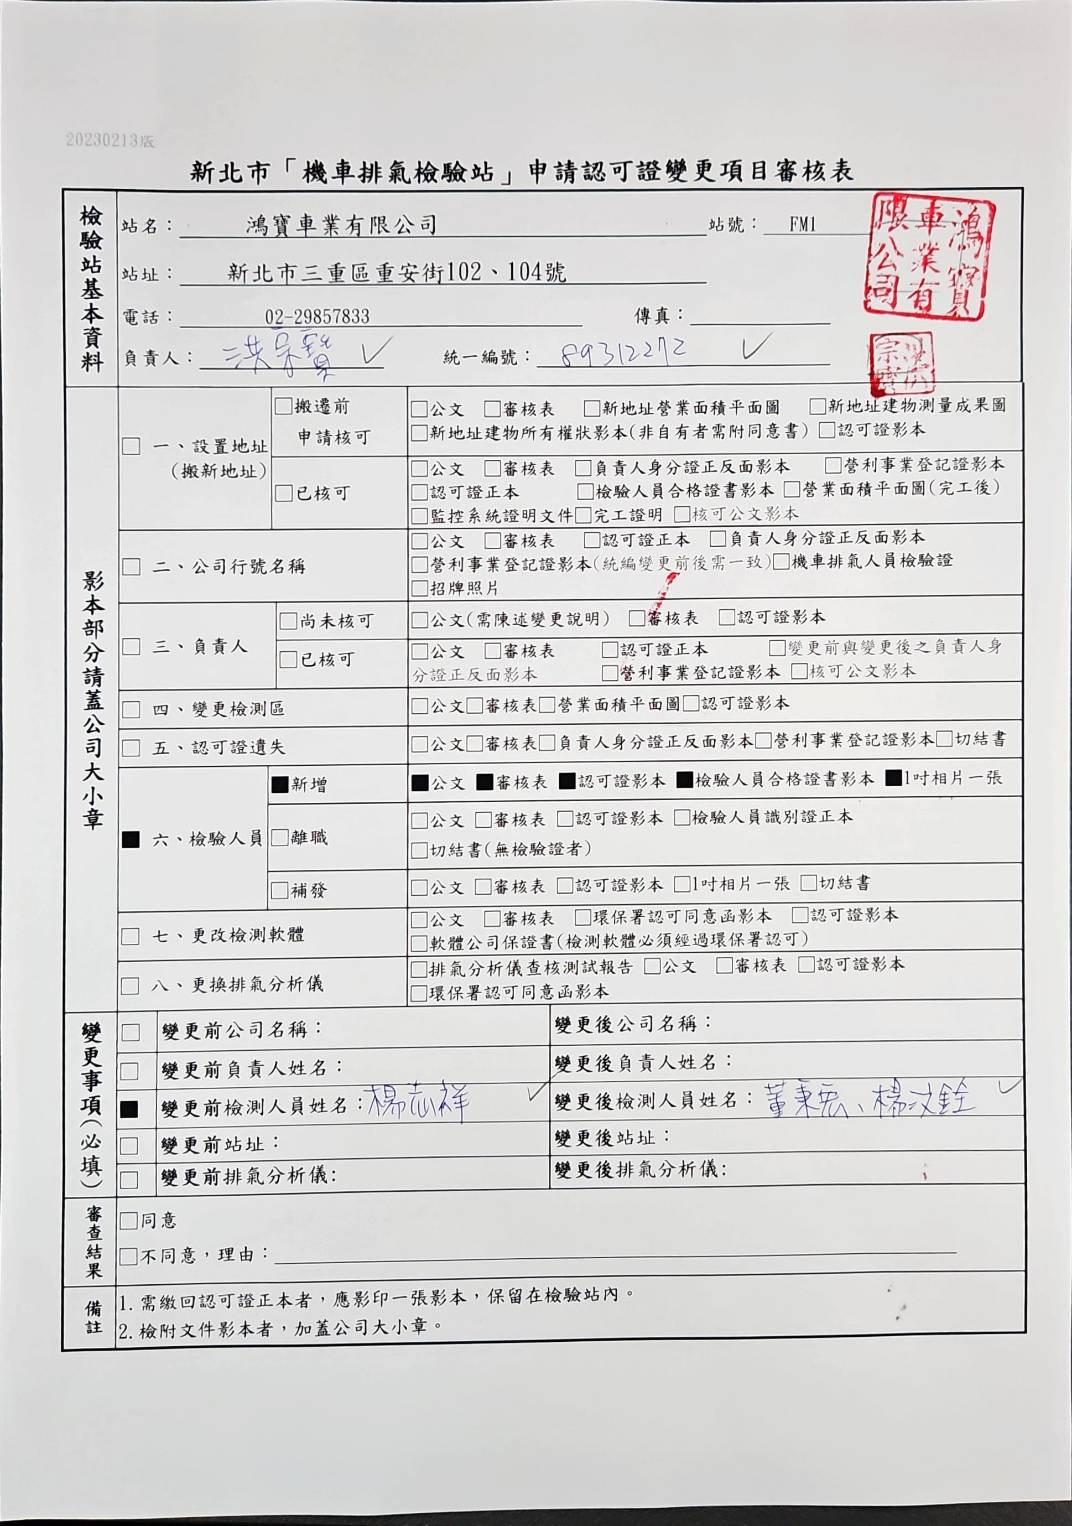 20230213版
新北市「機車排氣檢驗站」申請認可證變更項目審核表
檢驗站基本資料
站名： 鴻寶車業有限公司 站號： FM1
站址： 新北市三重區重安街102、104號
電話： 02-29857833 傳真：
負責人： 洪宗寶 ✓ 統一編號： 89312272 ✓
鴻寶車業有限公司
洪宗寶
影本部分請蓋公司大小章
□ 一、設置地址
(搬新地址)
□搬遷前
申請核可
□公文 □審核表 □新地址營業面積平面圖 □新地址建物測量成果圖
□新地址建物所有權狀影本(非自有者需附同意書) □認可證影本
□已核可
□公文 □審核表 □負責人身分證正反面影本 □營利事業登記證影本
□認可證正本 □檢驗人員合格證書影本 □營業面積平面圖(完工後)
□監控系統證明文件□完工證明 □核可公文影本
□ 二、公司行號名稱
□公文 □審核表 □認可證正本 □負責人身分證正反面影本
□營利事業登記證影本(統編變更前後需一致)□機車排氣人員檢驗證
□招牌照片
□ 三、負責人
□尚未核可
□公文(需陳述變更說明) □審核表 □認可證影本
□已核可
□公文 □審核表 □認可證正本 □變更前與變更後之負責人身
分證正反面影本 □營利事業登記證影本 □核可公文影本
□ 四、變更檢測區
□公文□審核表□營業面積平面圖□認可證影本
□ 五、認可證遺失
□公文□審核表□負責人身分證正反面影本□營利事業登記證影本□切結書
■ 六、檢驗人員
■新增
■公文 ■審核表 ■認可證影本 ■檢驗人員合格證書影本 ■1吋相片一張
□離職
□公文 □審核表 □認可證影本 □檢驗人員識別證正本
□切結書(無檢驗證者)
□補發
□公文 □審核表 □認可證影本 □1吋相片一張 □切結書
□ 七、更改檢測軟體
□公文 □審核表 □環保署認可同意函影本 □認可證影本
□軟體公司保證書(檢測軟體必須經過環保署認可)
□ 八、更換排氣分析儀
□排氣分析儀查核測試報告 □公文 □審核表 □認可證影本
□環保署認可同意函影本
變更事項(必填)
□ 變更前公司名稱： 變更後公司名稱：
□ 變更前負責人姓名： 變更後負責人姓名：
■ 變更前檢測人員姓名：楊志祥 ✓ 變更後檢測人員姓名：董秉宏、楊汶銓 ✓
□ 變更前站址： 變更後站址：
□ 變更前排氣分析儀: 變更後排氣分析儀:
審查結果
□同意
□不同意，理由：
備註
1.需繳回認可證正本者，應影印一張影本，保留在檢驗站內。
2.檢附文件影本者，加蓋公司大小章。